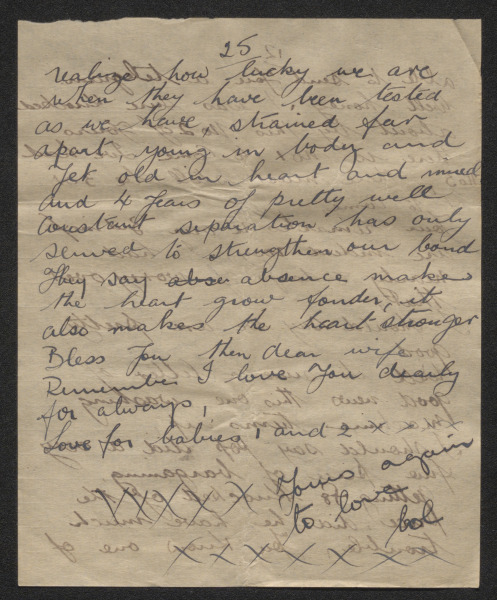 25
realize how lucky we are
when they have been tested
as we have, strained far
apart, young in body and
yet old in heart and mind
and 4 years of pretty well
constant separation has only
served to strengthen our bond
They say abse absence makes
the heart grow fonder, it
also makes the heart stronger
Bless you then dear wife
Remember I love you dearly
for always,
Love for babies, 1 and 2 x
Yours again
to love
X X X X X X
X X X X X X X